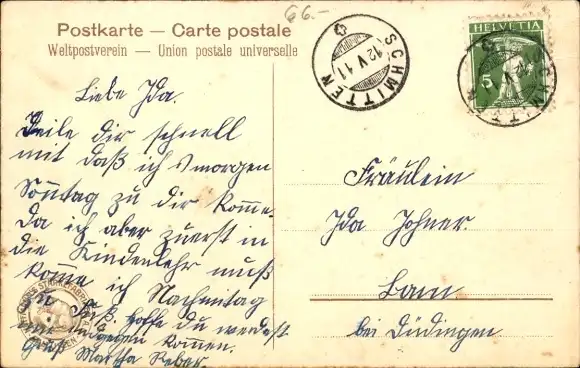 66.-
Postkarte — Carte postale
Weltpostverein — Union postale universelle
SCHMITTEN
12.V.11
HELVETIA
5
SCHMITTEN
Liebe Ida.
Teile dir schnell
mit daß ich morgen
Sonntag zu dir komme.
Da ich aber zuerst in
die Kinderlehr muß
kome ich Nachmitag
zu Fuß. Hoffe du werdest
mir entgegen kommen.
Gruß Martha Reber
Fräulein
Ida Johner.
Lam
bei Düdingen